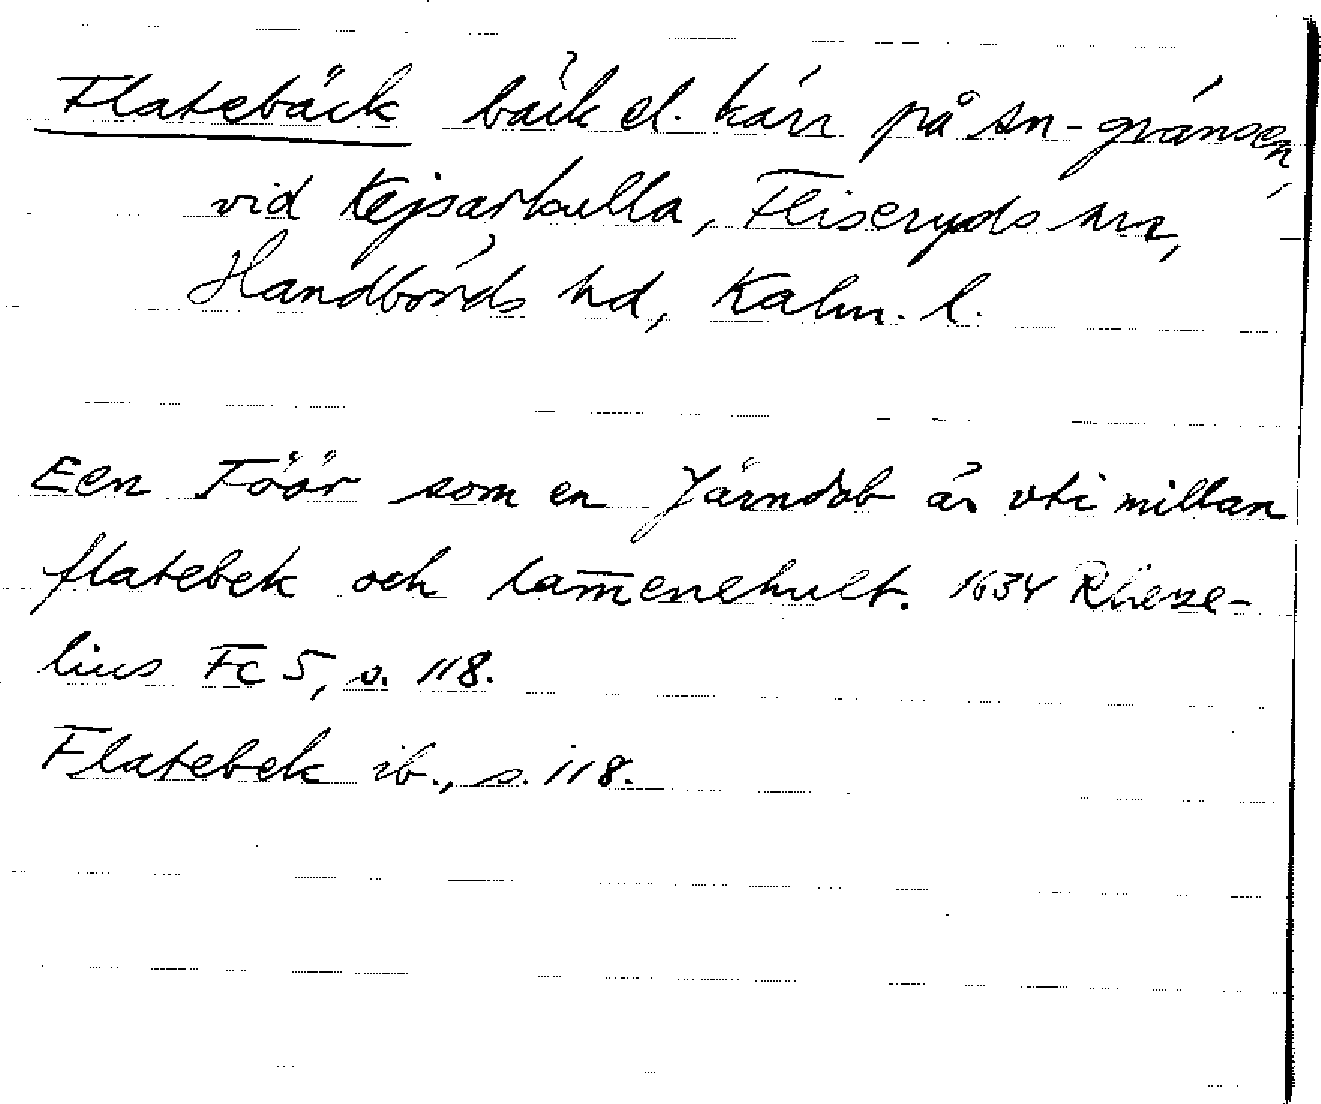 Flatebäck bäck el. kärr på sn-gränsen,
vid Kejsarkulla, Fliseryds sn,
Handbörds hd, Kalm. l.
Een Föör som en Järndob är vti millan
flatebek och lam̄enehult. 1634 Rheze-
lius Fc 5, s. 118.
Flatebek ib., s. 118.